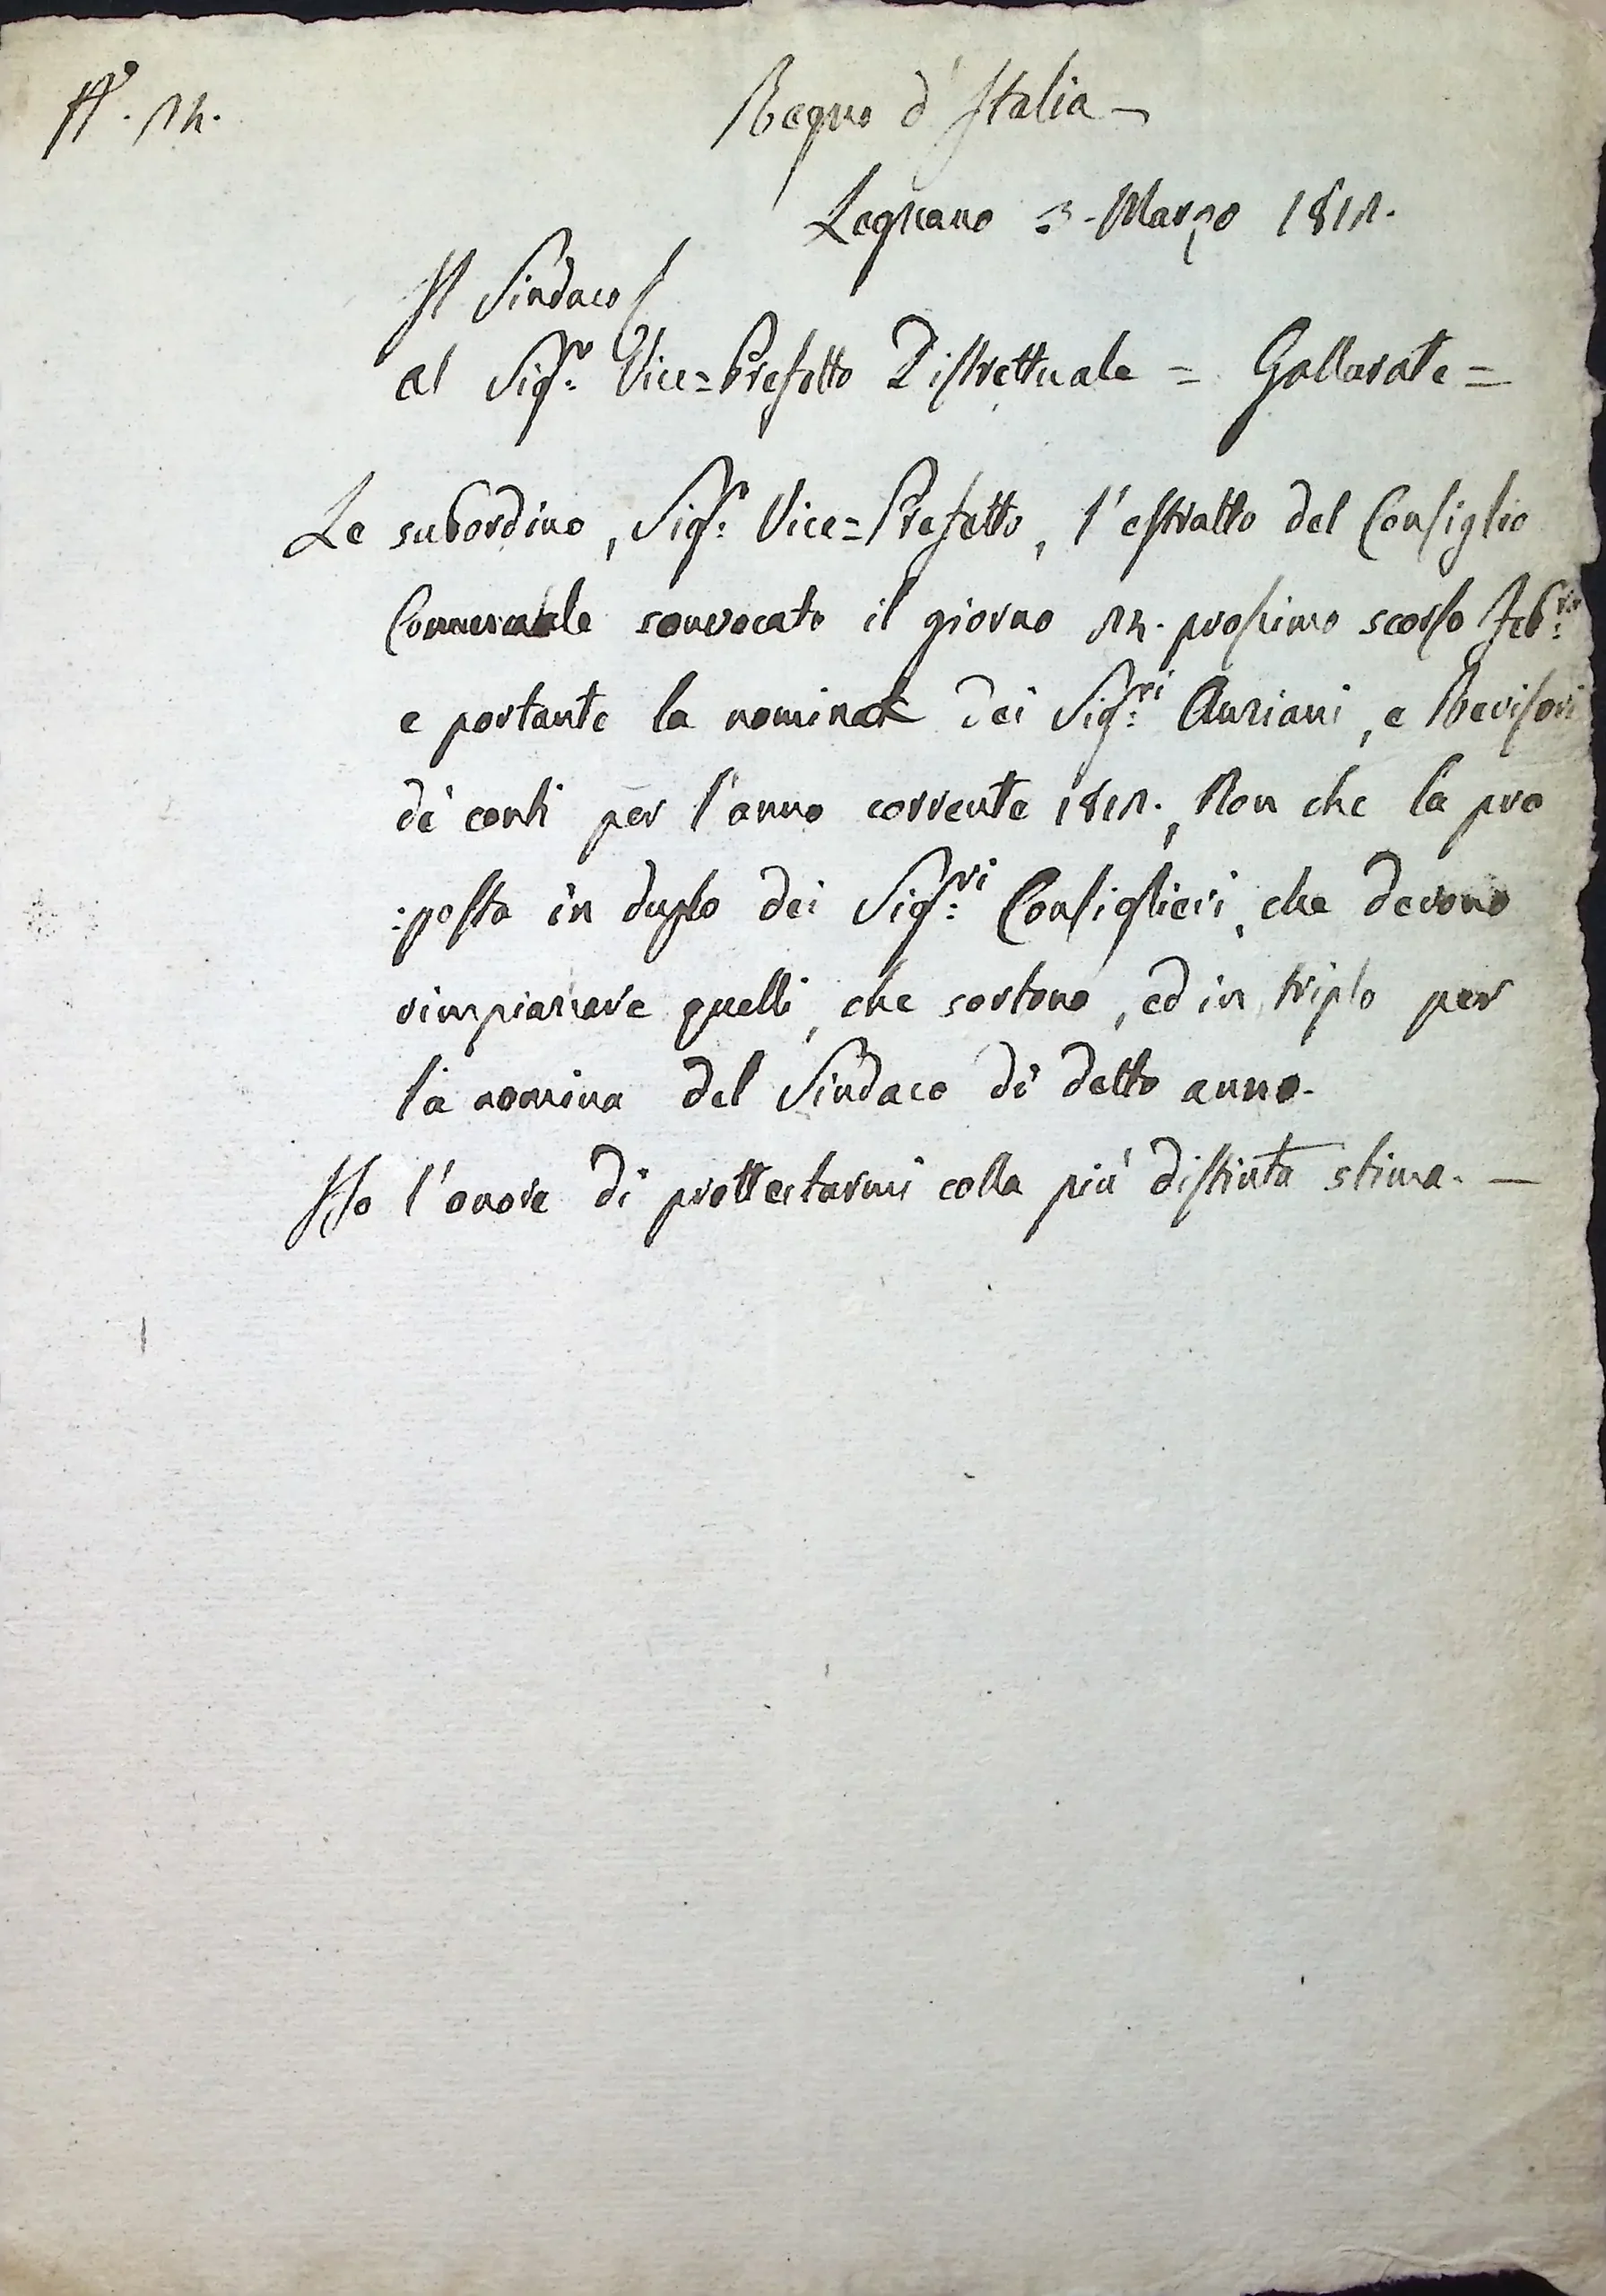 N°. 12.
Regno d'Italia —
Legnano 3. Marzo 1812.
Il Sindaco
al Sigr. Vice=Prefetto Distrettuale = Gallarate =
Le subordino, Sigr. Vice=Prefetto, l'estratto del Consiglio
Communale convocato il giorno prossimo scorso Febro.
e portante la nomina dei Sigri. Anziani, e Revisori
dè conti per l'anno corrente 1812., Non che la pro
:posta in duplo dei Sigri. Consiglieri, che devono
rimpiazzare quelli, che sortono, ed in triplo per
la nomina del Sindaco di detto anno.
Ho l'onore di prottestarmi colla più distinta stima. —